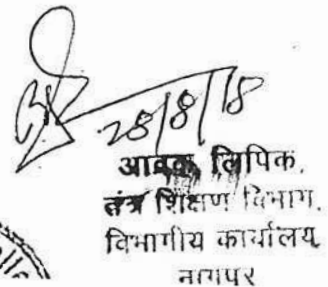 28/8/18
आवक लिपिक,
तंत्र शिक्षण विभाग,
विभागीय कार्यालय,
नागपूर